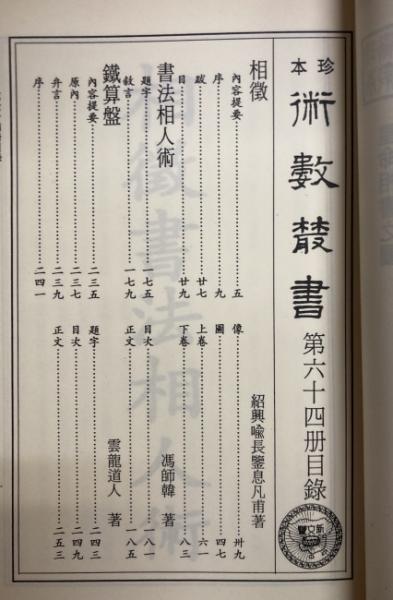 珍本
術數叢書 第六十四册目錄
相徵 紹興喩長鑒息凡甫著
內容提要……五 像……卅九
序……九 圖……四七
跋……廿七 上卷……六一
目……廿九 下卷……八三
書法相人術 馮師韓 著
題字……一七五 目次……一八一
敘言……一七九 正文……一八五
鐵算盤 雲龍道人 著
內容提要……二三五 題字……二四三
原內……二三七 目次……二四九
弁言……二三九 正文……二五三
序……二四一
新文豐
相徵書法相人術